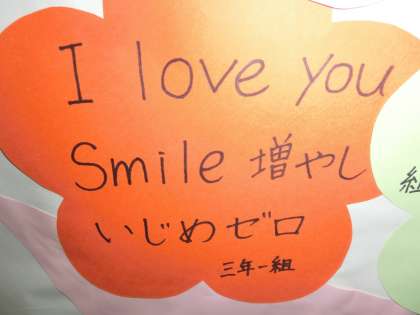 I love you
Smile 増やし
いじめゼロ
三年一組
組